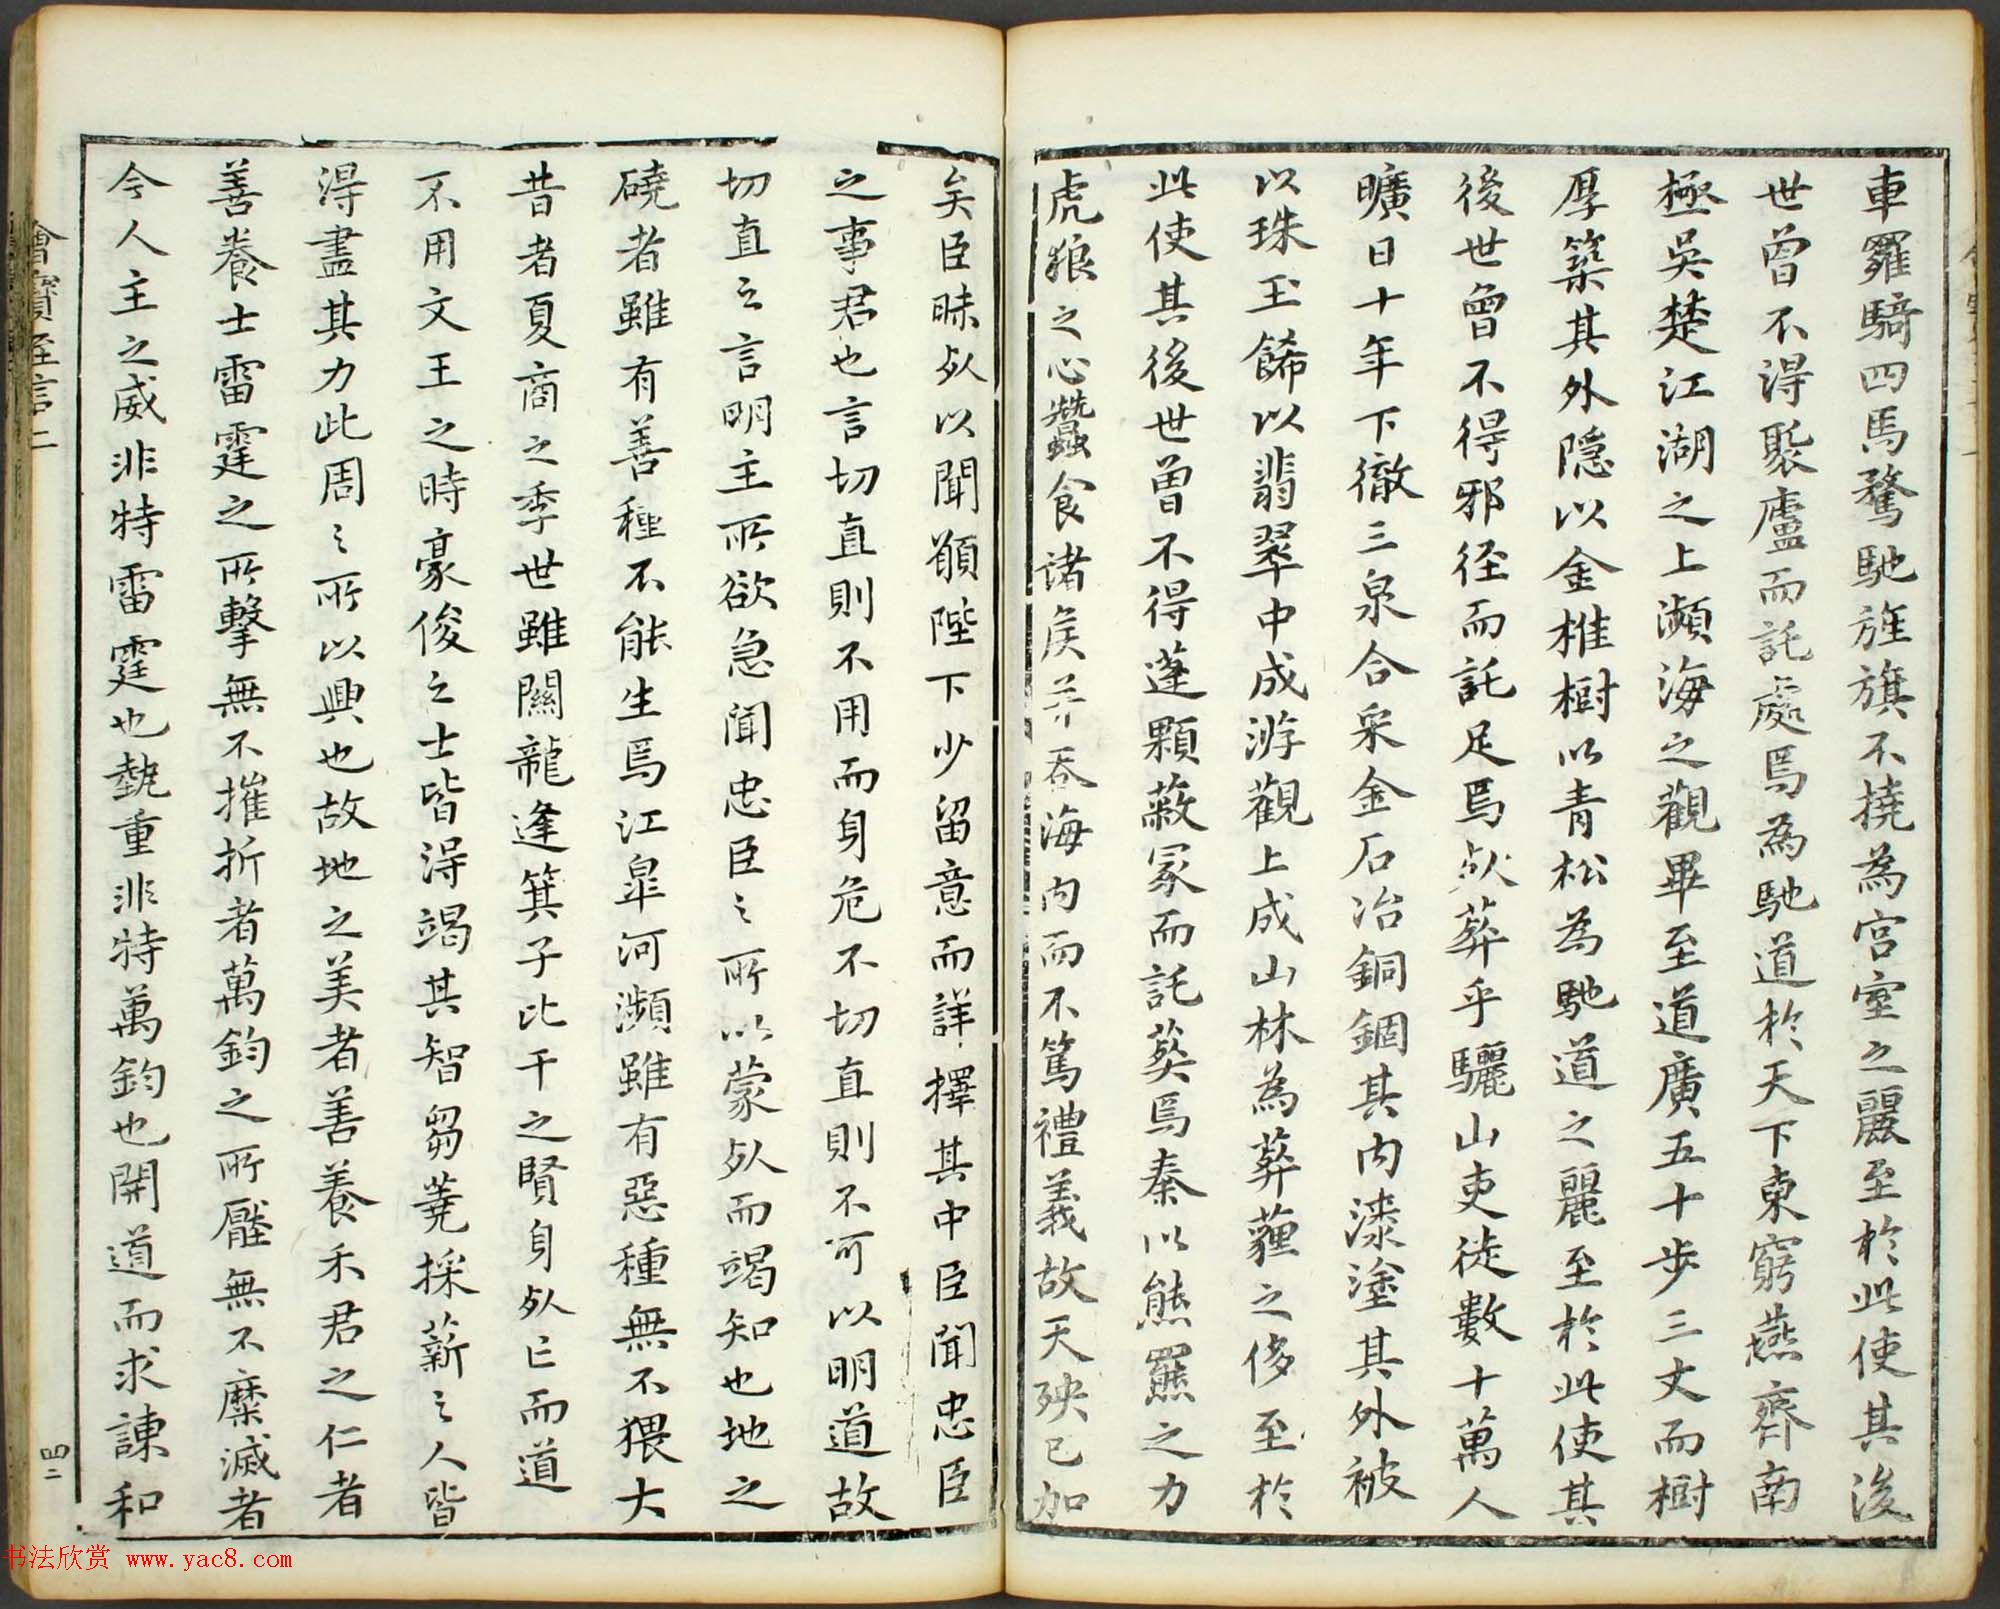 車羅騎四馬騖馳旌旗不撓為宮室之麗至於此使其後
世曾不得聚廬而託處焉為馳道於天下東窮燕齊南
極吳楚江湖之上瀕海之觀畢至道廣五十步三丈而樹
厚築其外隱以金椎樹以青松為馳道之麗至於此使其
後世曾不得邪徑而託足焉死葬乎驪山吏徒數十萬人
曠日十年下徹三泉合采金石冶銅錮其內漆塗其外被
以珠玉餙以翡翠中成游觀上成山林為葬薶之侈至於
此使其後世曾不得蓬顆蔽冢而託葬焉秦以熊羆之力
虎狼之心蠶食諸侯并吞海內而不篤禮義故天殃已加
矣臣昧死以聞願陛下少留意而詳擇其中臣聞忠臣
之事君也言切直則不用而身危不切直則不可以明道故
切直之言明主所欲急聞忠臣之所以蒙死而竭知也地之
磽者雖有善種不能生焉江皐河瀕雖有惡種無不猥大
昔者夏商之季世雖關龍逢箕子比干之賢身死亡而道
不用文王之時豪俊之士皆得竭其智芻蕘採薪之人皆
得盡其力此周之所以興也故地之美者善養禾君之仁者
善養士雷霆之所擊無不摧折者萬鈞之所壓無不糜滅者
今人主之威非特雷霆也埶重非特萬鈞也開道而求諫和
會寶至言二
四二
书法欣赏 www.yac8.com